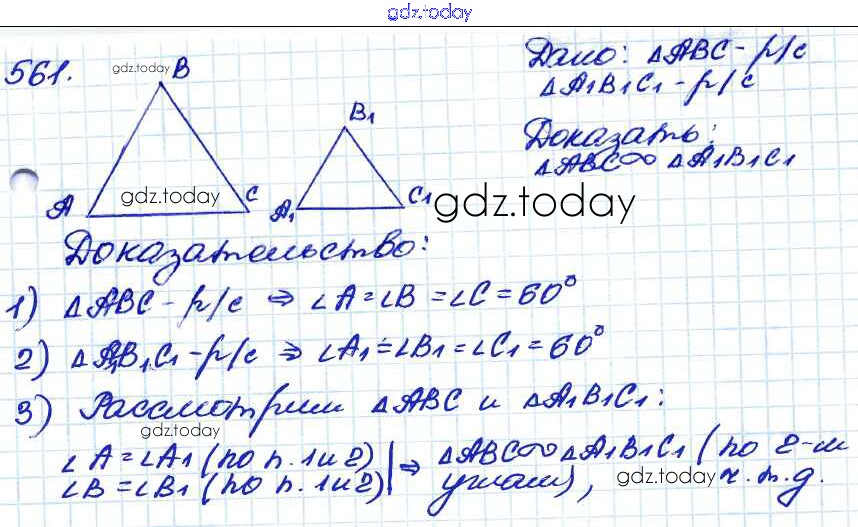 gdz.today
561.
gdz.today
B
A
C
gdz.today
B1
A1
C1
gdz.today
Дано: ΔABC - р/с
ΔA1B1C1 - р/с
Доказать:
ΔABC∞ ΔA1B1C1
Доказательство:
1) ΔABC - р/с ⇒ ∠A=∠B=∠C=60°
2) ΔA1B1C1 - р/с ⇒ ∠A1=∠B1=∠C1=60°
3) Рассмотрим ΔABC и ΔA1B1C1:
gdz.today
∠A=∠A1 (по п. 1 и 2) | ⇒ ΔABC∞ΔA1B1C1 (по 2-м
∠B=∠B1 (по п. 1 и 2) | углам), gdz.today ч.т.д.